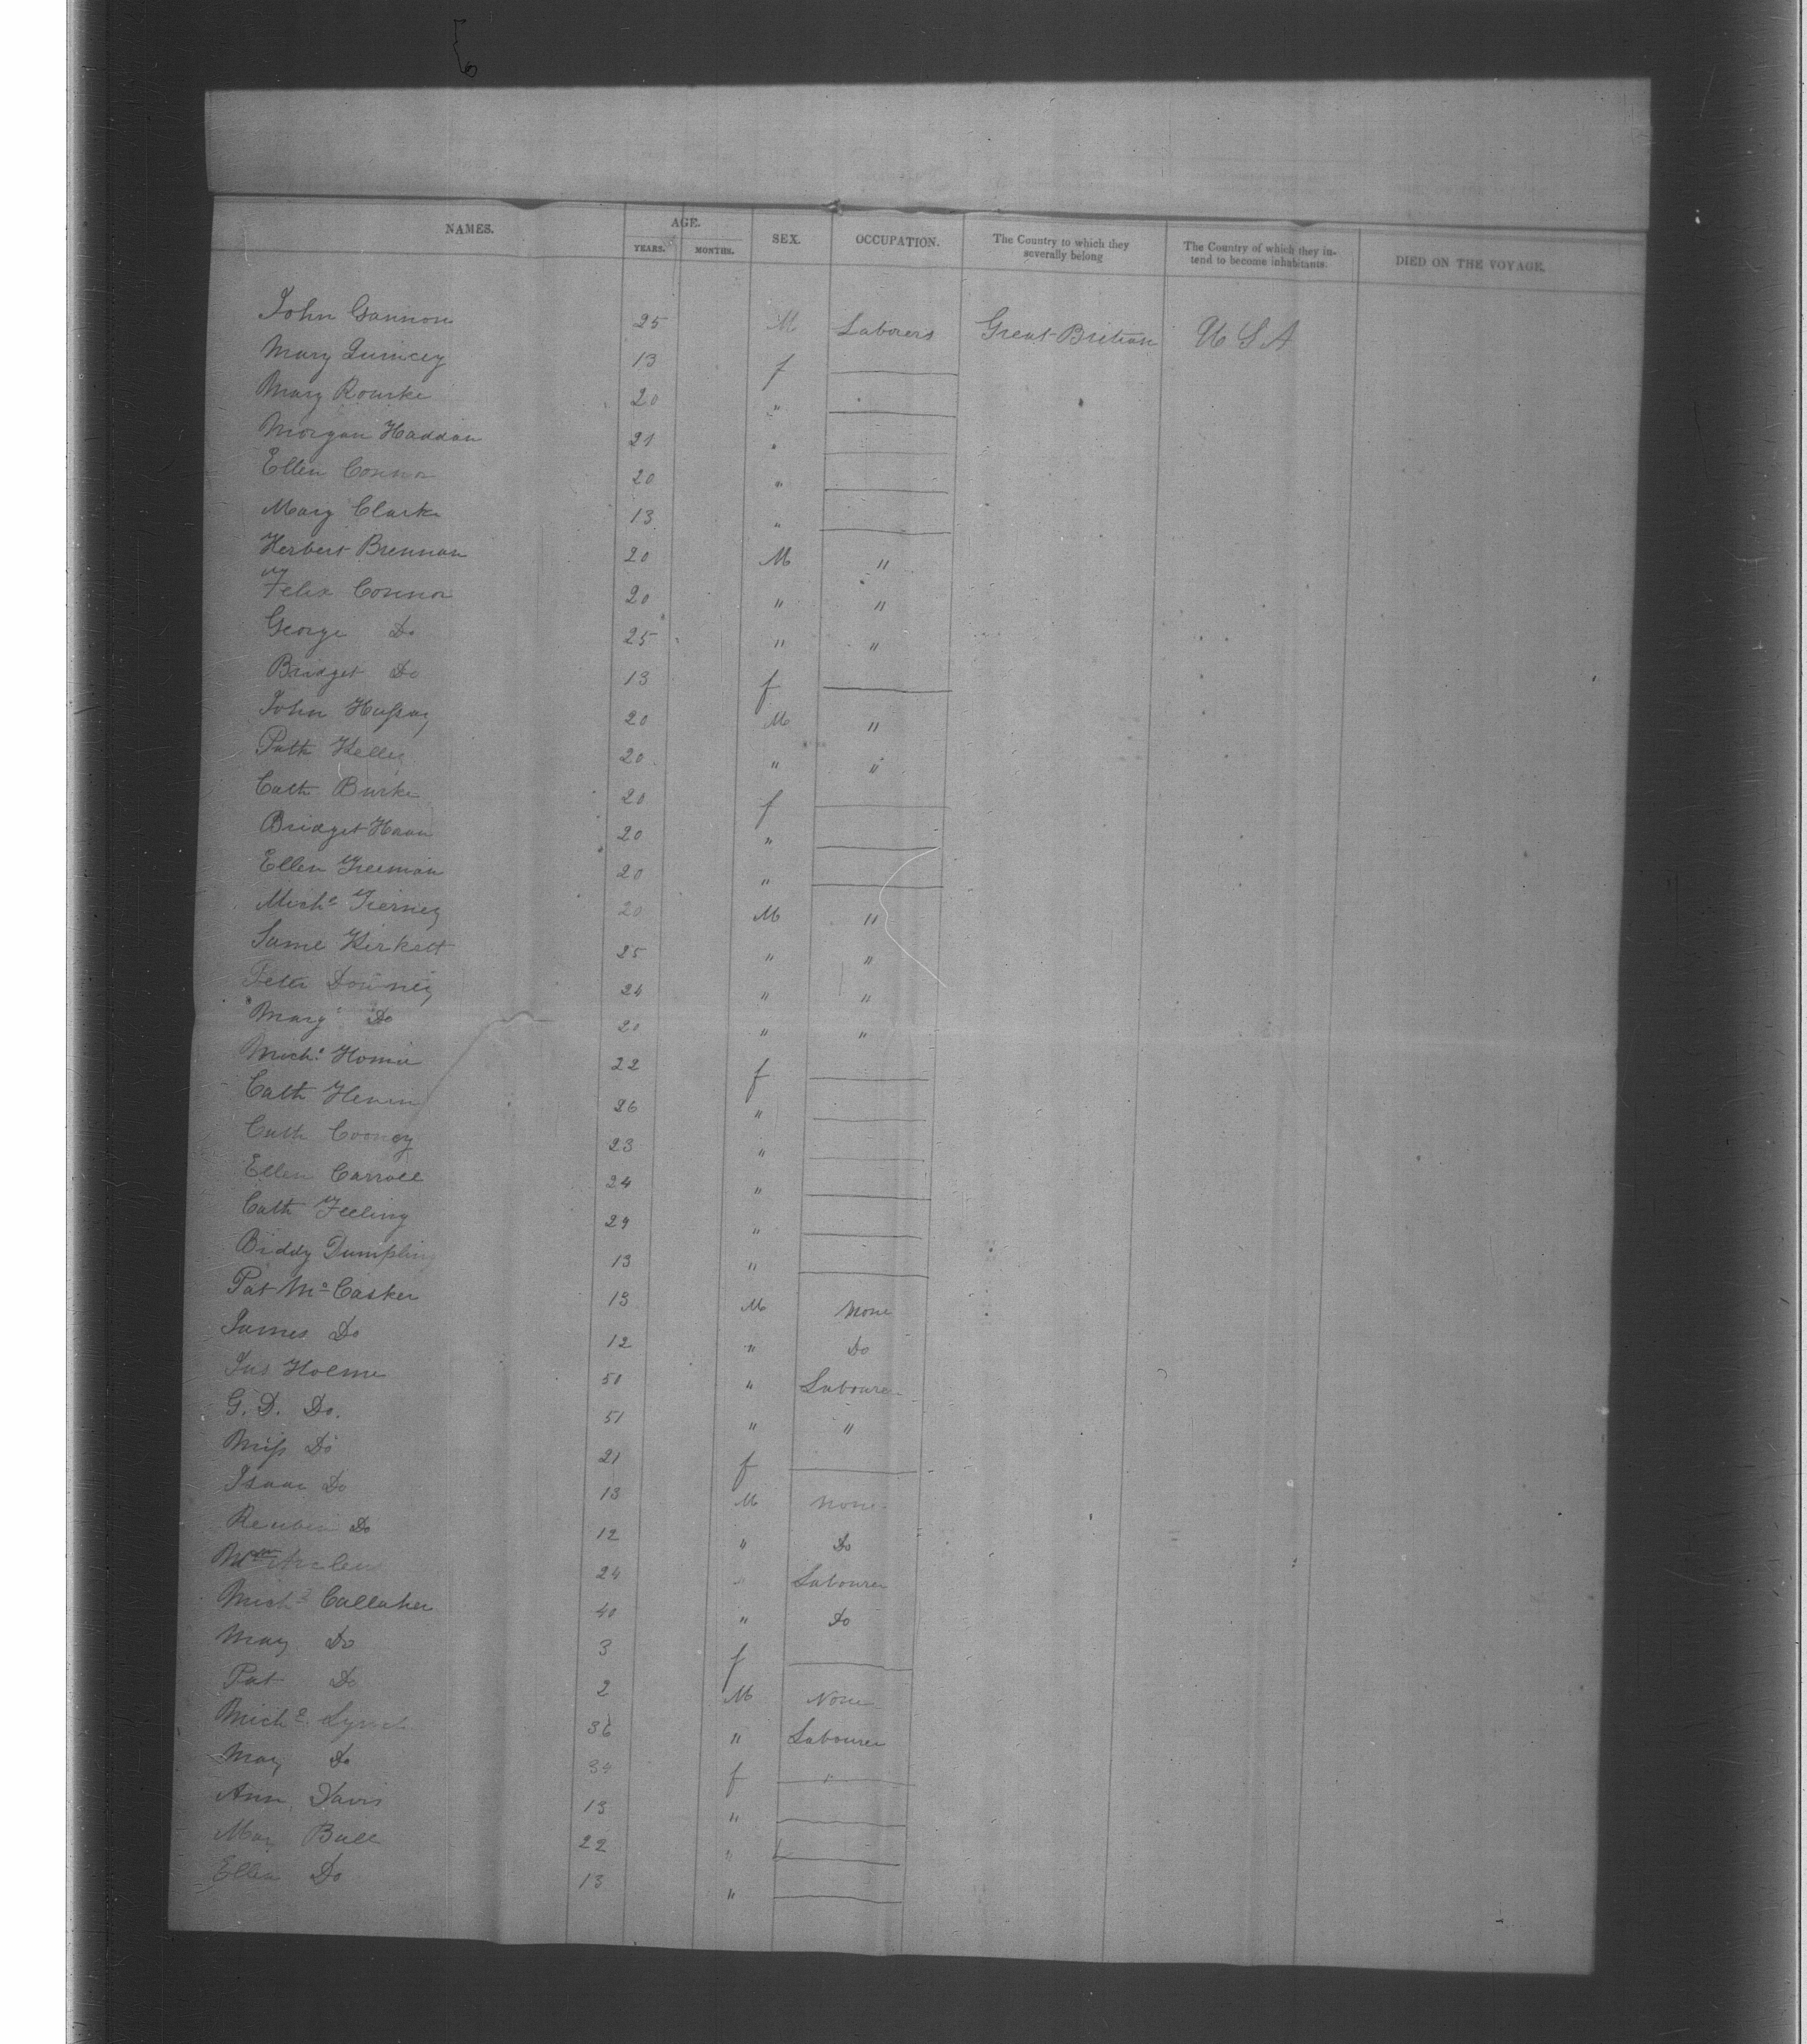 NAMES. AGE. YEARS. MONTHS. SEX. OCCUPATION. The Country to which they severally belong The Country of which they intend to become inhabitants. DIED ON THE VOYAGE.
John Gannon 25 M Laborers Great Britian U S A
Mary Quincey 13 f
Mary Rourke 20 "
Morgan Haddan 21 "
Ellen Connor 20 "
Mary Clarke 13 "
Herbert Brennan 20 M "
Felix Connor 20 " "
George Do 25 " "
Bridget Do 13 f
John Hussay 20 M "
Path Kelley 20 " "
Cath Burke 20 f
Bridget 20 "
Ellen Freeman 20 "
Michl Tierney 20 M "
25 " "
Peter Downey 24 " "
Mary Do 20 " "
Michl 22 f
Cath 26 "
Cath Cooney 23 "
Ellen Carroll 24 "
Cath Feeling 29 "
Biddy Dumpling 13 "
Pat McCasker 13 M None
James Do 12 " Do
Jas Holme 50 " Labourer
G. D. Do. 51 " "
Miss Do 21 f
Isaac Do 13 M None
Reuben Do 12 " Do
24 " Labourer
Michl Callaher 40 " Do
Mary Do 3 f
Pat Do 2 M None
Michl Lynch 36 " Labourer
Mary Do 34 f
Ann Davis 13 "
Mary Bull 22 "
Ellen Do 13 "